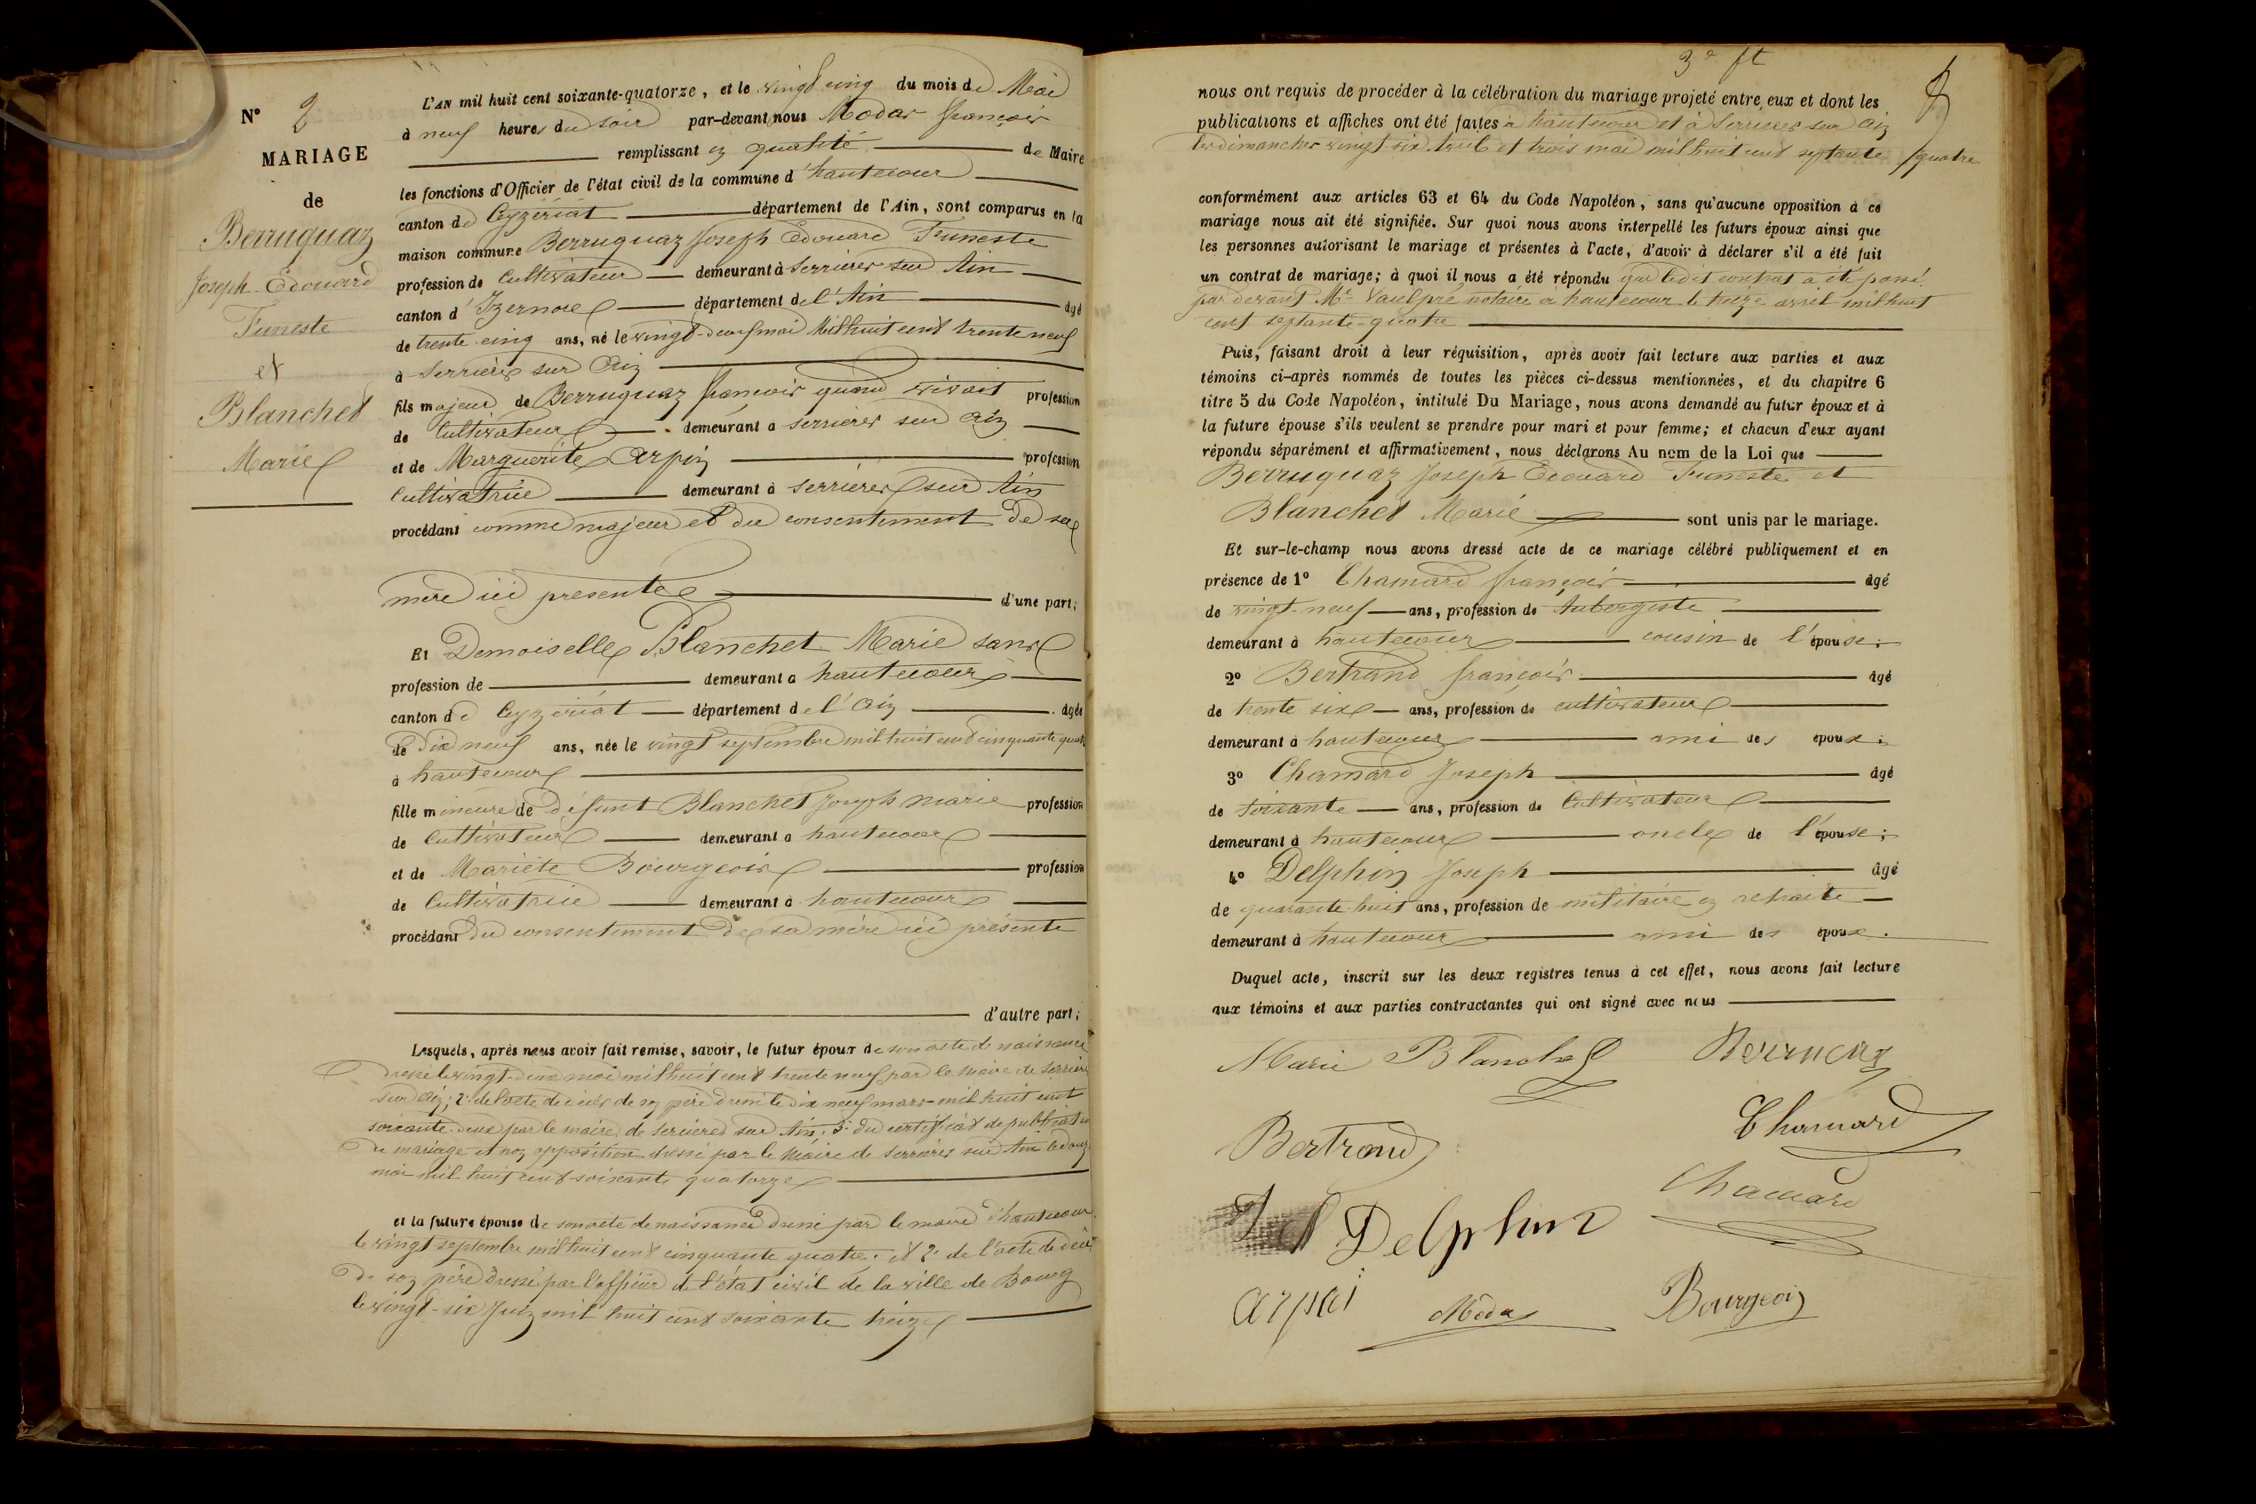 N° 2
MARIAGE
de
Berruquaz
Joseph Edouard
Funeste
et
Blanchet
Marie
L'AN mil huit cent soixante-quatorze, et le vingt cinq du mois de Mai
à neuf heures du soir par-devant nous Modas françois
remplissant en qualité de Maire
les fonctions d'Officier de l'état civil de la commune d'hautecour
canton de Ceyzériat département de l'Ain, sont comparus en la
maison commune Berruquaz Joseph Edouard Funeste
profession de Cultivateur demeurant à Serrières sur Ain
canton d'Izernore département de l'Ain âgé
de trente cinq ans, né le vingt-deux mai Mil huit cent trente neuf
à Serrières sur Ain
fils majeur de Berruquaz françois quand vivait profession
de Cultivateur demeurant à serrières sur Ain
et de Marguerite Arpin profession
Cultivatrice demeurant à serrières sur Ain
procédant comme majeur et du consentement de sa
mère ici présente d'une part;
Et Demoiselle Blanchet Marie sans
profession de demeurant à hautecour
canton de Ceyzériat département de l'Ain âgée
de dix neuf ans, née le vingt septembre mil huit cent cinquante quatre
à hautecour
fille mineure de défunt Blanchet Joseph marie profession
de Cultivateur demeurant à hautecour
et de Mariete Bourgeois profession
de Cultivatrice demeurant à hautecour
procédant du consentement de sa mère ici présente
d'autre part;
Lesquels, après nous avoir fait remise, savoir, le futur époux de son acte de naissance
dressé le vingt-deux mai mil huit cent trente neuf par le Maire de serrières
sur Ain; 2° de l'acte de décès de son père dressé le dix neuf mars mil huit cent
soixante deux par le maire de serrières sur Ain; 3° du certificat de publication
de mariage et non opposition dressé par le Maire de serrières sur Ain le douze
mai mil huit cent soixante quatorze
et la future épouse de son acte de naissance dressé par le maire d'hautecour
le vingt septembre mil huit cent cinquante quatre; et 2° de l'acte de décès
de son père dressé par l'officier de l'état civil de la ville de Bourg
le vingt-six Juin mil huit cent soixante treize
3e ft
nous ont requis de procéder à la célébration du mariage projeté entre eux et dont les
publications et affiches ont été faites à hautecour et à Serrières sur Ain
les dimanches vingt six avril et trois mai mil huit cent septante quatre
conformément aux articles 63 et 64 du Code Napoléon, sans qu'aucune opposition à ce
mariage nous ait été signifiée. Sur quoi nous avons interpellé les futurs époux ainsi que
les personnes autorisant le mariage et présentes à l'acte, d'avoir à déclarer s'il a été fait
un contrat de mariage; à quoi il nous a été répondu que ledit contrat a été passé
par devant Me Vaulpré notaire à hautecour le treize avril mil huit
cent septante-quatre
Puis, faisant droit à leur réquisition, après avoir fait lecture aux parties et aux
témoins ci-après nommés de toutes les pièces ci-dessus mentionnées, et du chapitre 6
titre 5 du Code Napoléon, intitulé Du Mariage, nous avons demandé au futur époux et à
la future épouse s'ils veulent se prendre pour mari et pour femme; et chacun d'eux ayant
répondu séparément et affirmativement, nous déclarons Au nom de la Loi que
Berruquaz Joseph Edouard Funeste et
Blanchet Marie sont unis par le mariage.
Et sur-le-champ nous avons dressé acte de ce mariage célébré publiquement et en
présence de 1° Chamard françois âgé
de vingt-neuf ans, profession de Aubergiste
demeurant à hautecour cousin de l'épouse;
2° Bertrand françois âgé
de trente six ans, profession de cultivateur
demeurant à hautecour ami des époux;
3° Chamard Joseph âgé
de soixante ans, profession de Cultivateur
demeurant à hautecour oncle de l'épouse;
4° Delphin Joseph âgé
de quarante huit ans, profession de militaire en retraite
demeurant à hautecour ami des époux.
Duquel acte, inscrit sur les deux registres tenus à cet effet, nous avons fait lecture
aux témoins et aux parties contractantes qui ont signé avec nous
Marie Blanchet Berrucaz
Bertrand Chamard
Delphin Chamard
arpai Modas Bourgeois